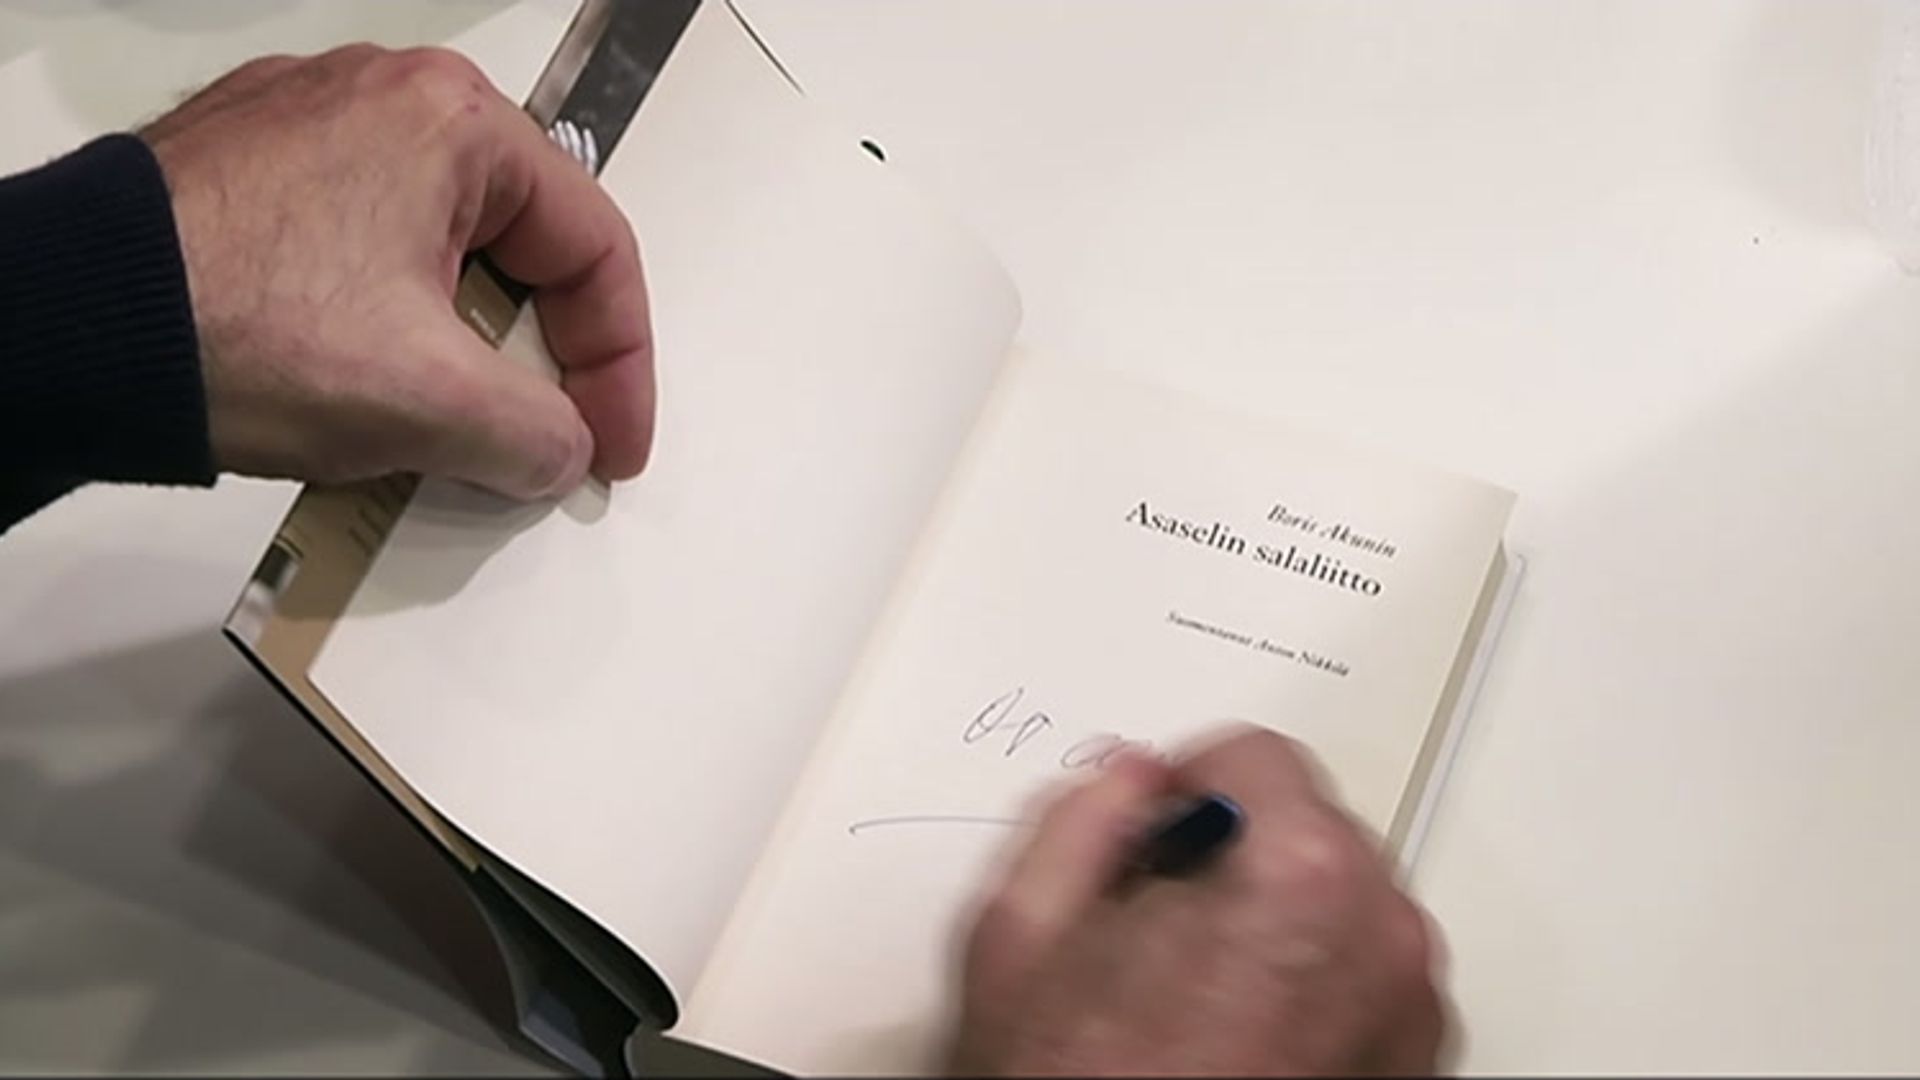 Boris Akunin
Asaselin salaliitto
Suomentanut Anton Nikkilä